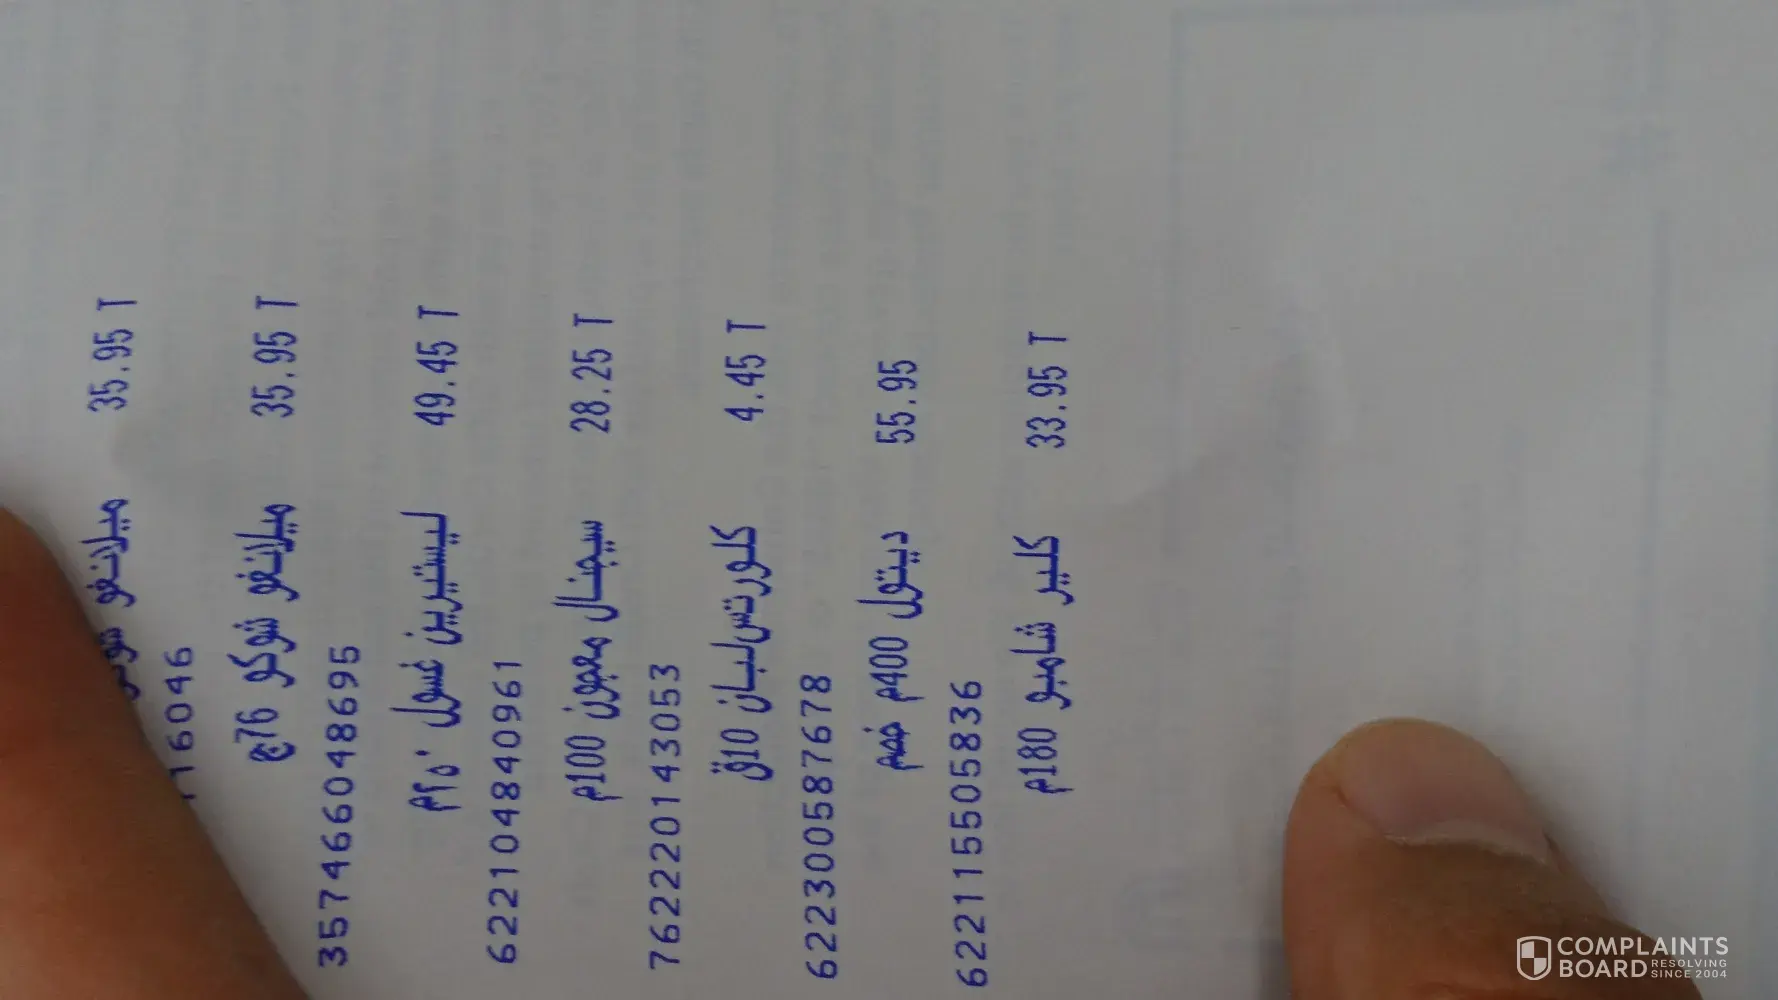 ميلانغو 35.95 T
16046
ميلانغو شوكو 76ج 35.95 T
3574660486995
ليستيرين غسول ٢٥٠م 49.45 T
6221048840961
سيجنال معجون 100م 28.25 T
7622220143053
كلورتس لبان 10ق 4.45 T
6223005876878
ديتول 400م خصم 55.95
6221155058836
كلير شامبو 180م 33.95 T
COMPLAINTS BOARD
RESOLVING SINCE 2004